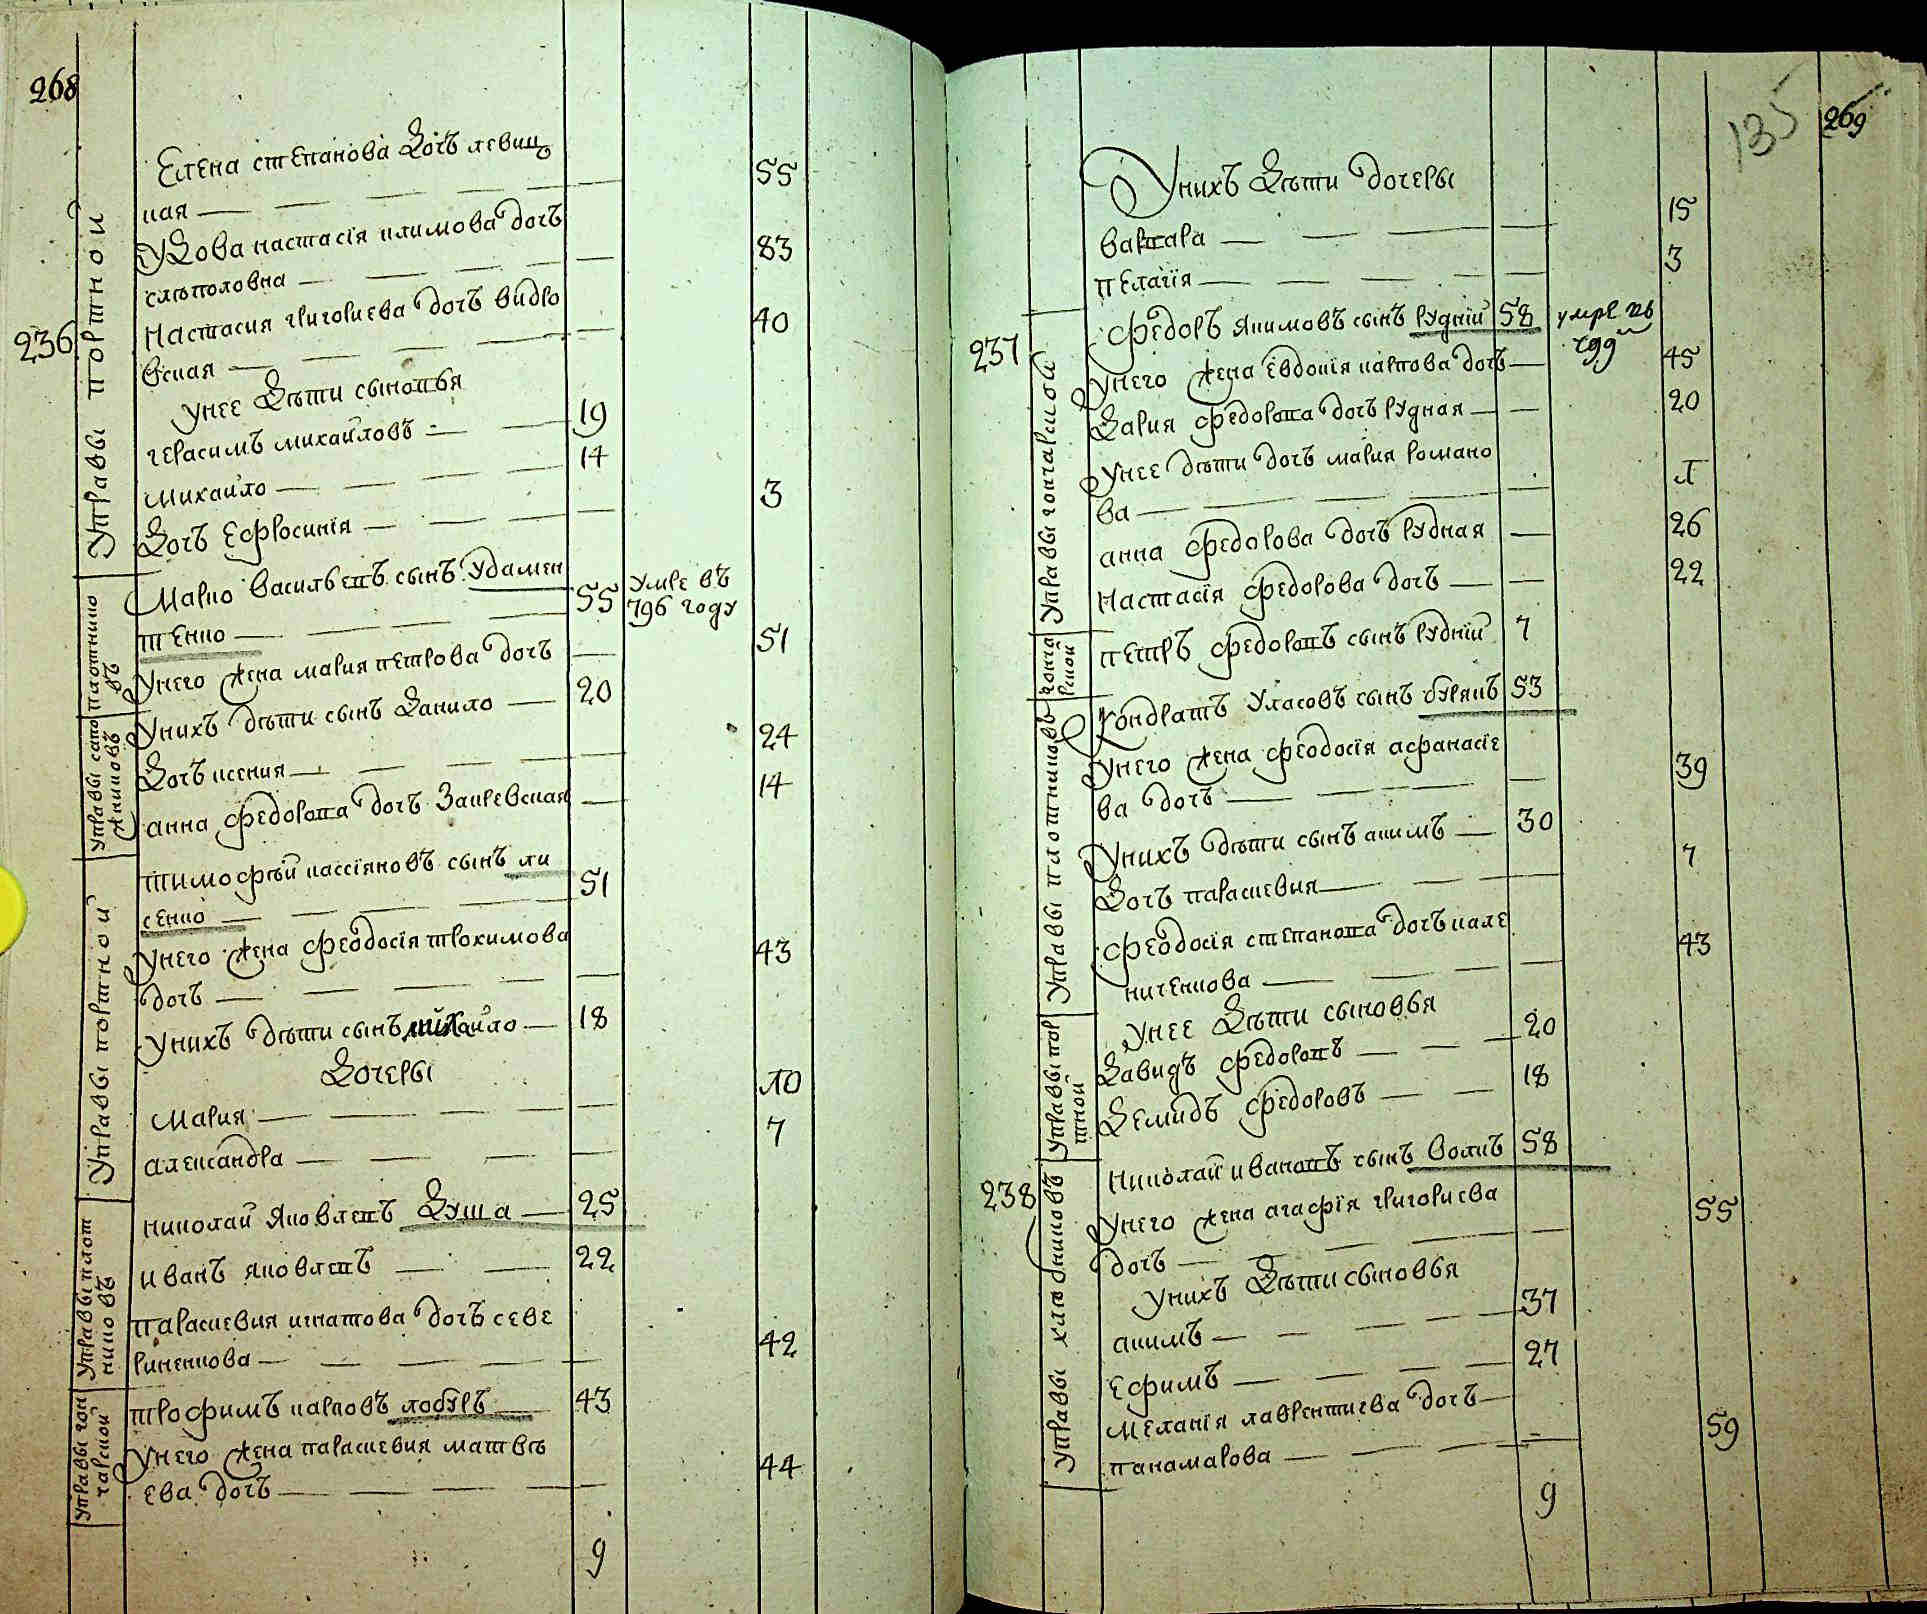 268
Елена степанова дочь левиц
кая — 55
Удова настасія климова дочь
слѣполовна — 83
236
управы портной
Настасия григориева дочь видло
вская — 40
Унее дѣти сыновья
герасимъ михайловъ — 19
михайло — 14
дочь Ефросинія — 3
управы плотнико
въ
Марко васильевъ сынъ Удамен
тенко — 55 умре въ
796 году
Унего жена мария петрова дочь — 51
Унихъ дѣти сынъ данило — 20
управы сапо
жниковъ
дочь ксения — 24
анна федорова дочь Закревская — 14
управы портной
тимофѣй кассіяновъ сынъ ли
сенко — 51
Унего жена феодосія трохимова
дочь — 43
Унихъ дѣти сынъ михайло — 18
дочеры
Мария — 10
александра — 7
управы плот
никовъ
николай яковлевъ Душа — 25
иванъ яковлевъ — 22
параскевия игнатова дочь севе
риненкова — 42
управы гон
чарской
трофимъ карповъ лобуръ — 43
Унего жена параскевия матвѣ
ева дочь — 44
9
135
269
Унихъ дѣти дочеры
варвара — 15
пелагія — 3
237
управы гончарской
федоръ якимовъ сынъ рудній 58 умре въ
799
Унего жена евдокія карпова дочь — 45
дария федорова дочь рудная — 20
Унее дѣти дочь мария романо
ва — 1
анна федорова дочь рудная — 26
Настасія федорова дочь — 22
гонча
рской
петръ федоровъ сынъ рудній 7
управы плотниковъ
Кондратъ Уласовъ сынъ бурякъ 53
Унего жена феодосія афанасіе
ва дочь — 39
Унихъ дѣти сынъ акимъ — 30
дочь параскевия — 7
феодосія степанова дочь кале
ниченкова — 43
управы пор
тной
Унее дѣти сыновья
давидъ федоровъ — 20
демидъ федоровъ — 18
238
управы калачниковъ
Николай ивановъ сынъ вовкъ 58
Унего жена агафія григориева
дочь — 55
Унихъ дѣти сыновья
акимъ — 37
ефимъ — 27
меланія лаврентиева дочь —
панамарова — 59
9